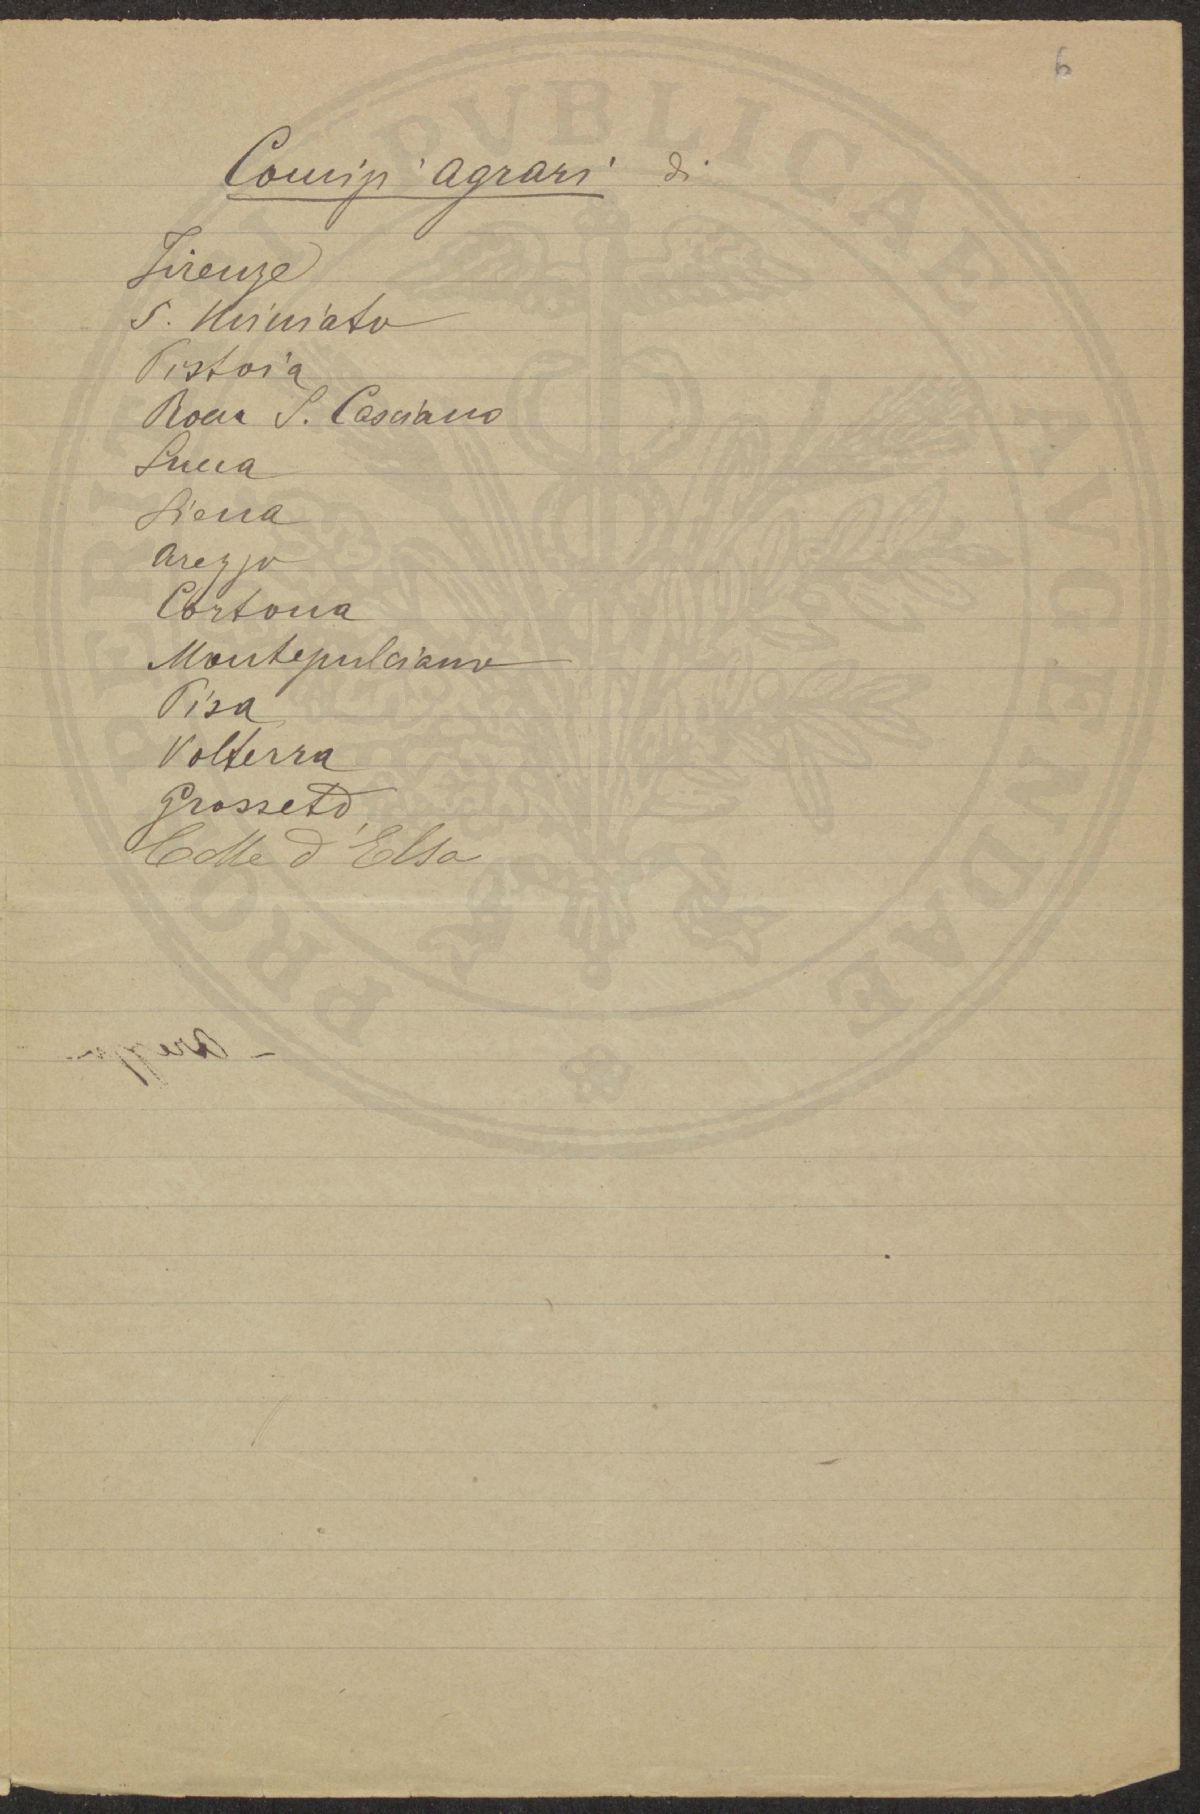 6
Comizi agrari di
Firenze
S. Miniato
Pistoia
Rocca S. Casciano
Lucca
Siena
Arezzo
Cortona
Montepulciano
Pisa
Volterra
Grosseto
Colle d'Elsa
PROSPERITATI PUBLICAE AVGENDAE
- Arezzo